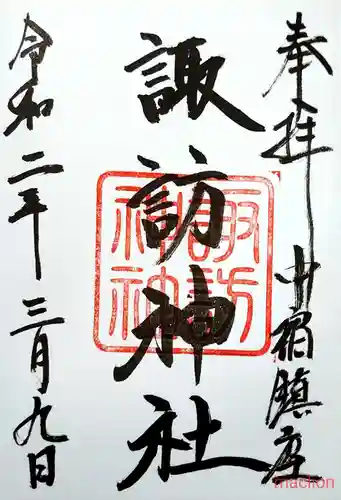 奉拝 中宿鎮座
諏訪神社
諏訪神社
令和二年三月九日
maction